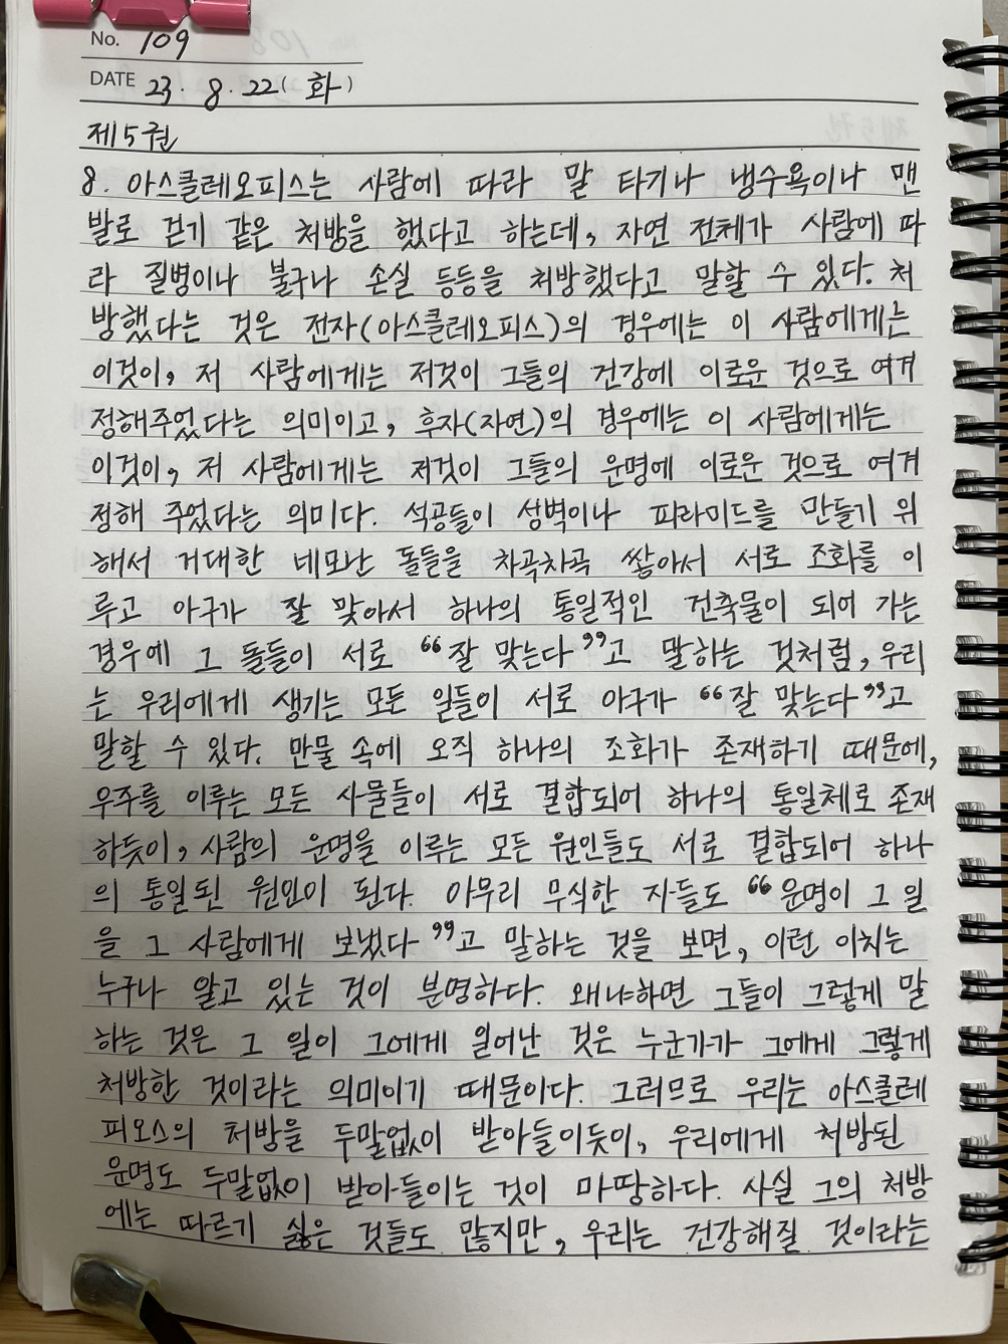 No. 109
DATE 23. 8. 22(화)
제5권
8. 아스클레오피스는 사람에 따라 말 타기나 냉수욕이나 맨
발로 걷기 같은 처방을 했다고 하는데, 자연 전체가 사람에 따
라 질병이나 불구나 손실 등등을 처방했다고 말할 수 있다. 처
방했다는 것은 전자(아스클레오피스)의 경우에는 이 사람에게는
이것이, 저 사람에게는 저것이 그들의 건강에 이로운 것으로 여겨
정해주었다는 의미이고, 후자(자연)의 경우에는 이 사람에게는
이것이, 저 사람에게는 저것이 그들의 운명에 이로운 것으로 여겨
정해 주었다는 의미다. 석공들이 성벽이나 피라미드를 만들기 위
해서 거대한 네모난 돌들을 차곡차곡 쌓아서 서로 조화를 이
루고 아구가 잘 맞아서 하나의 통일적인 건축물이 되어 가는
경우에 그 돌들이 서로 “잘 맞는다”고 말하는 것처럼, 우리
는 우리에게 생기는 모든 일들이 서로 아구가 “잘 맞는다”고
말할 수 있다. 만물 속에 오직 하나의 조화가 존재하기 때문에,
우주를 이루는 모든 사물들이 서로 결합되어 하나의 통일체로 존재
하듯이, 사람의 운명을 이루는 모든 원인들도 서로 결합되어 하나
의 통일된 원인이 된다. 아무리 무식한 자들도 “운명이 그 일
을 그 사람에게 보냈다”고 말하는 것을 보면, 이런 이치는
누구나 알고 있는 것이 분명하다. 왜냐하면 그들이 그렇게 말
하는 것은 그 일이 그에게 일어난 것은 누군가가 그에게 그렇게
처방한 것이라는 의미이기 때문이다. 그러므로 우리는 아스클레
피오스의 처방을 두말없이 받아들이듯이, 우리에게 처방된
운명도 두말없이 받아들이는 것이 마땅하다. 사실 그의 처방
에는 따르기 싫은 것들도 많지만, 우리는 건강해질 것이라는